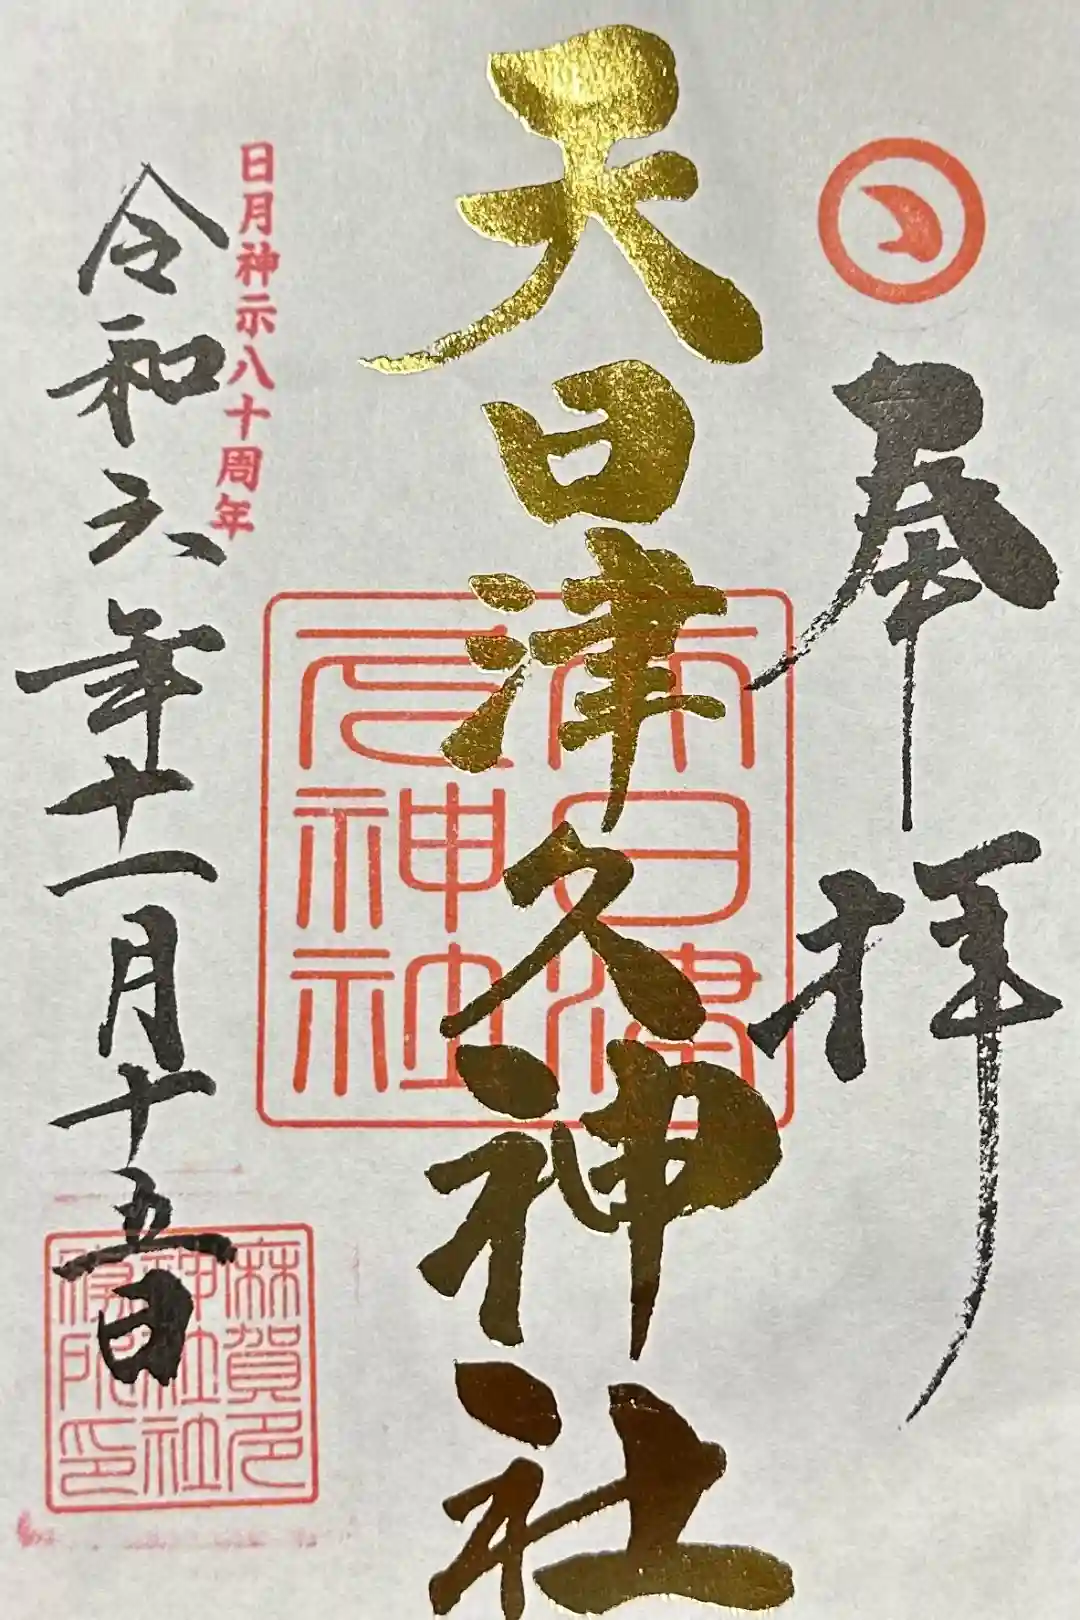 奉拝
天日津久神社
天日津久神社
日月神示八十周年
令和六年十一月十五日
麻賀多神社社務所印